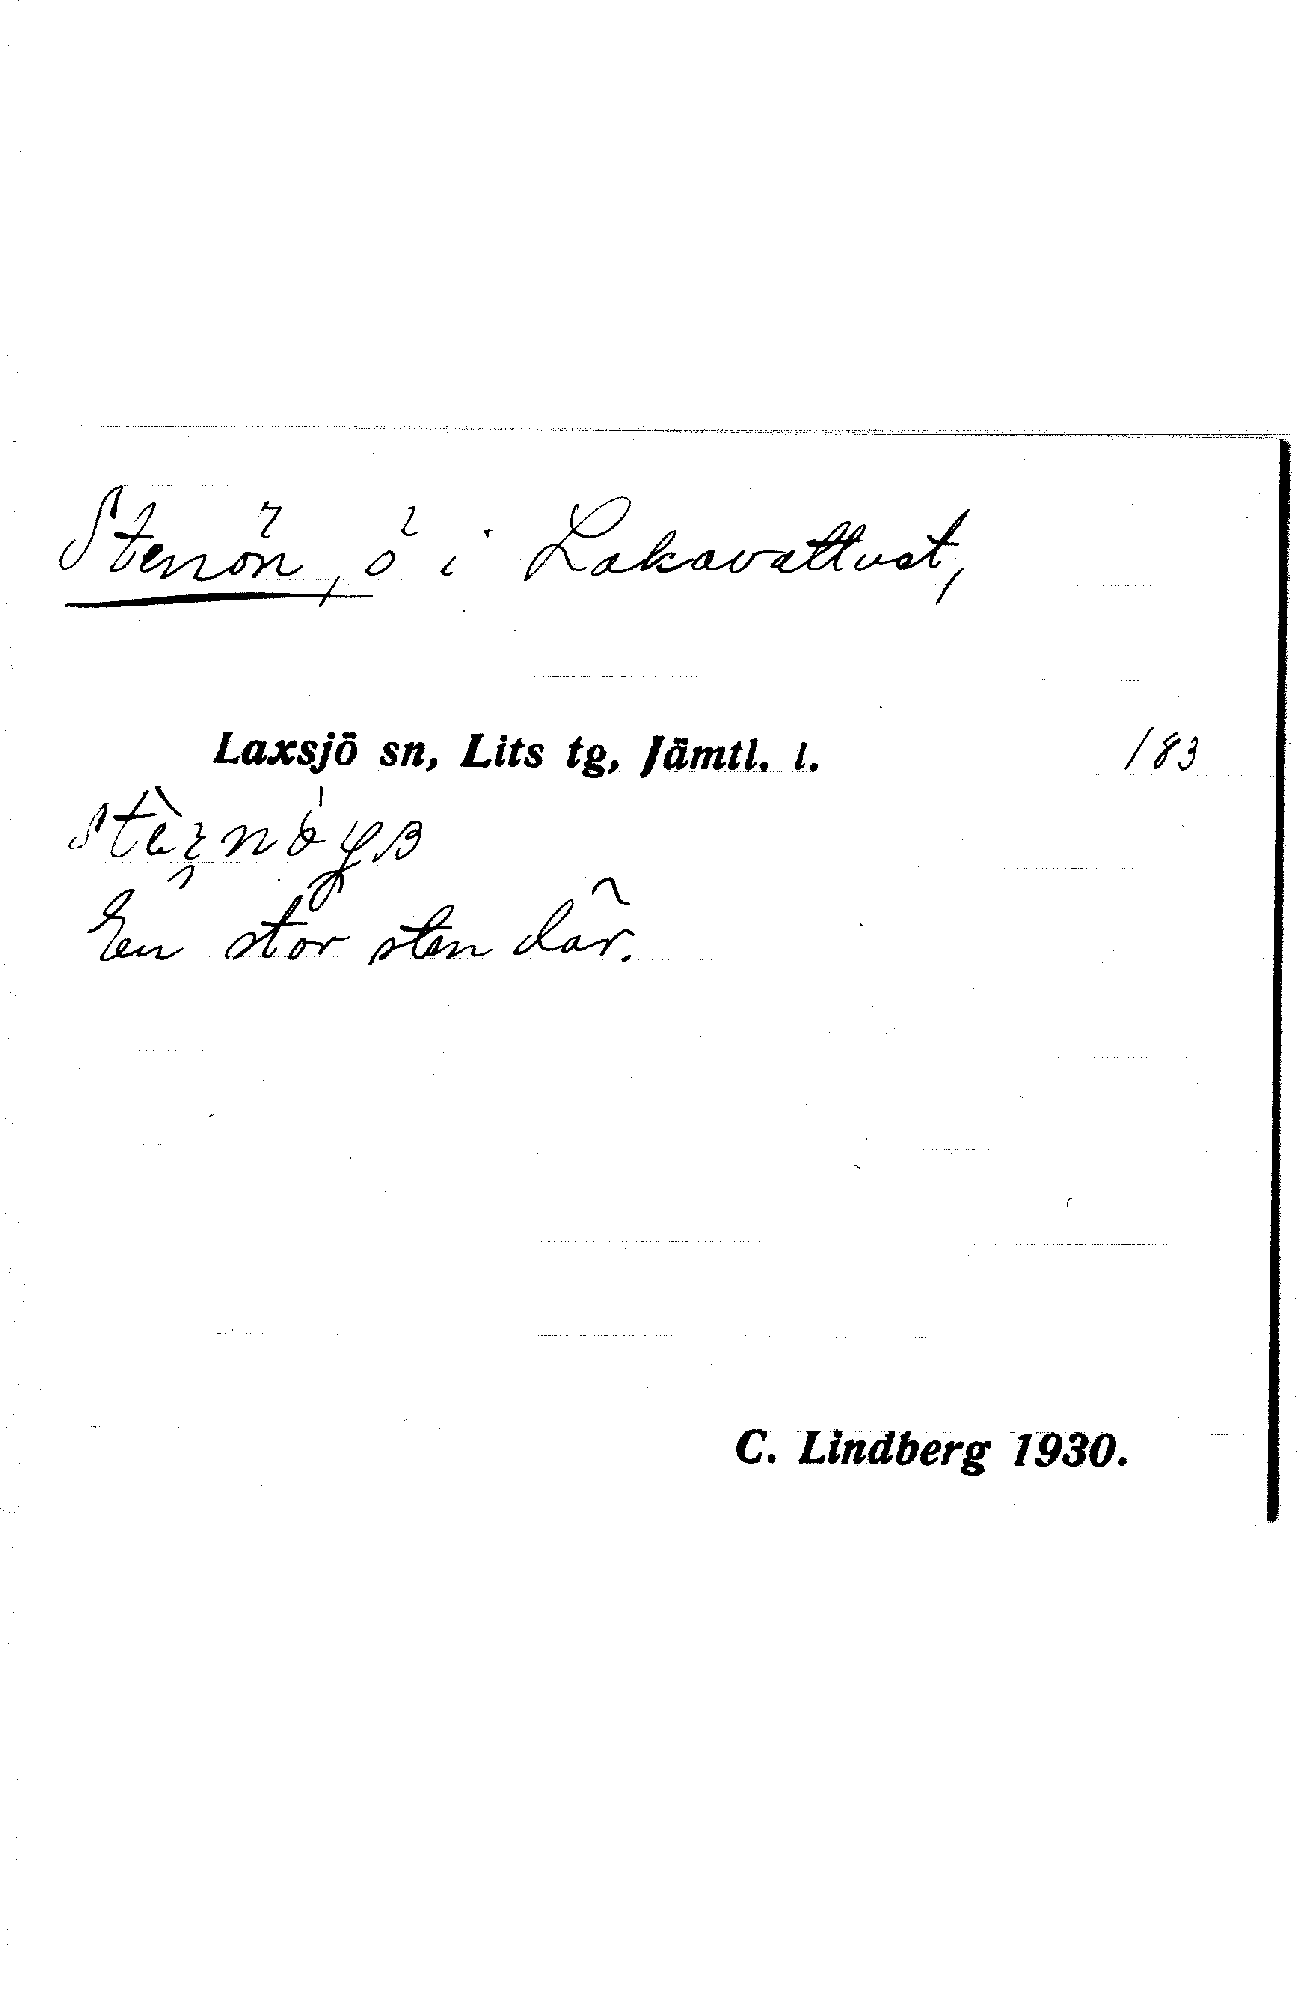 Stenön, ö i Lakavattust,
Laxsjö sn, Lits tg, Jämtl. l. 183
En stor sten där.
C. Lindberg 1930.